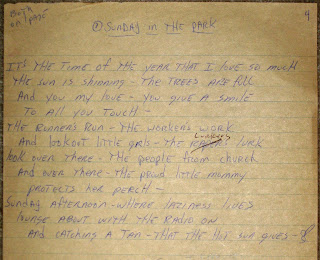 Both
on 1 page
9
② SUNDAY IN THE PARK
It's The Time of The year That I love so much
The sun is shinning - The trees are full
And you my love - you give a smile
To all you touch -
The Runners Run - The workers work
And lookout little girls - The lurkers lurk
look over there - The people from church
And over there - The proud little mommy
protects her perch -
Sunday afternoon - where laziness lives
lounge about with the radio on
And catching a tan - that the hot sun gives -